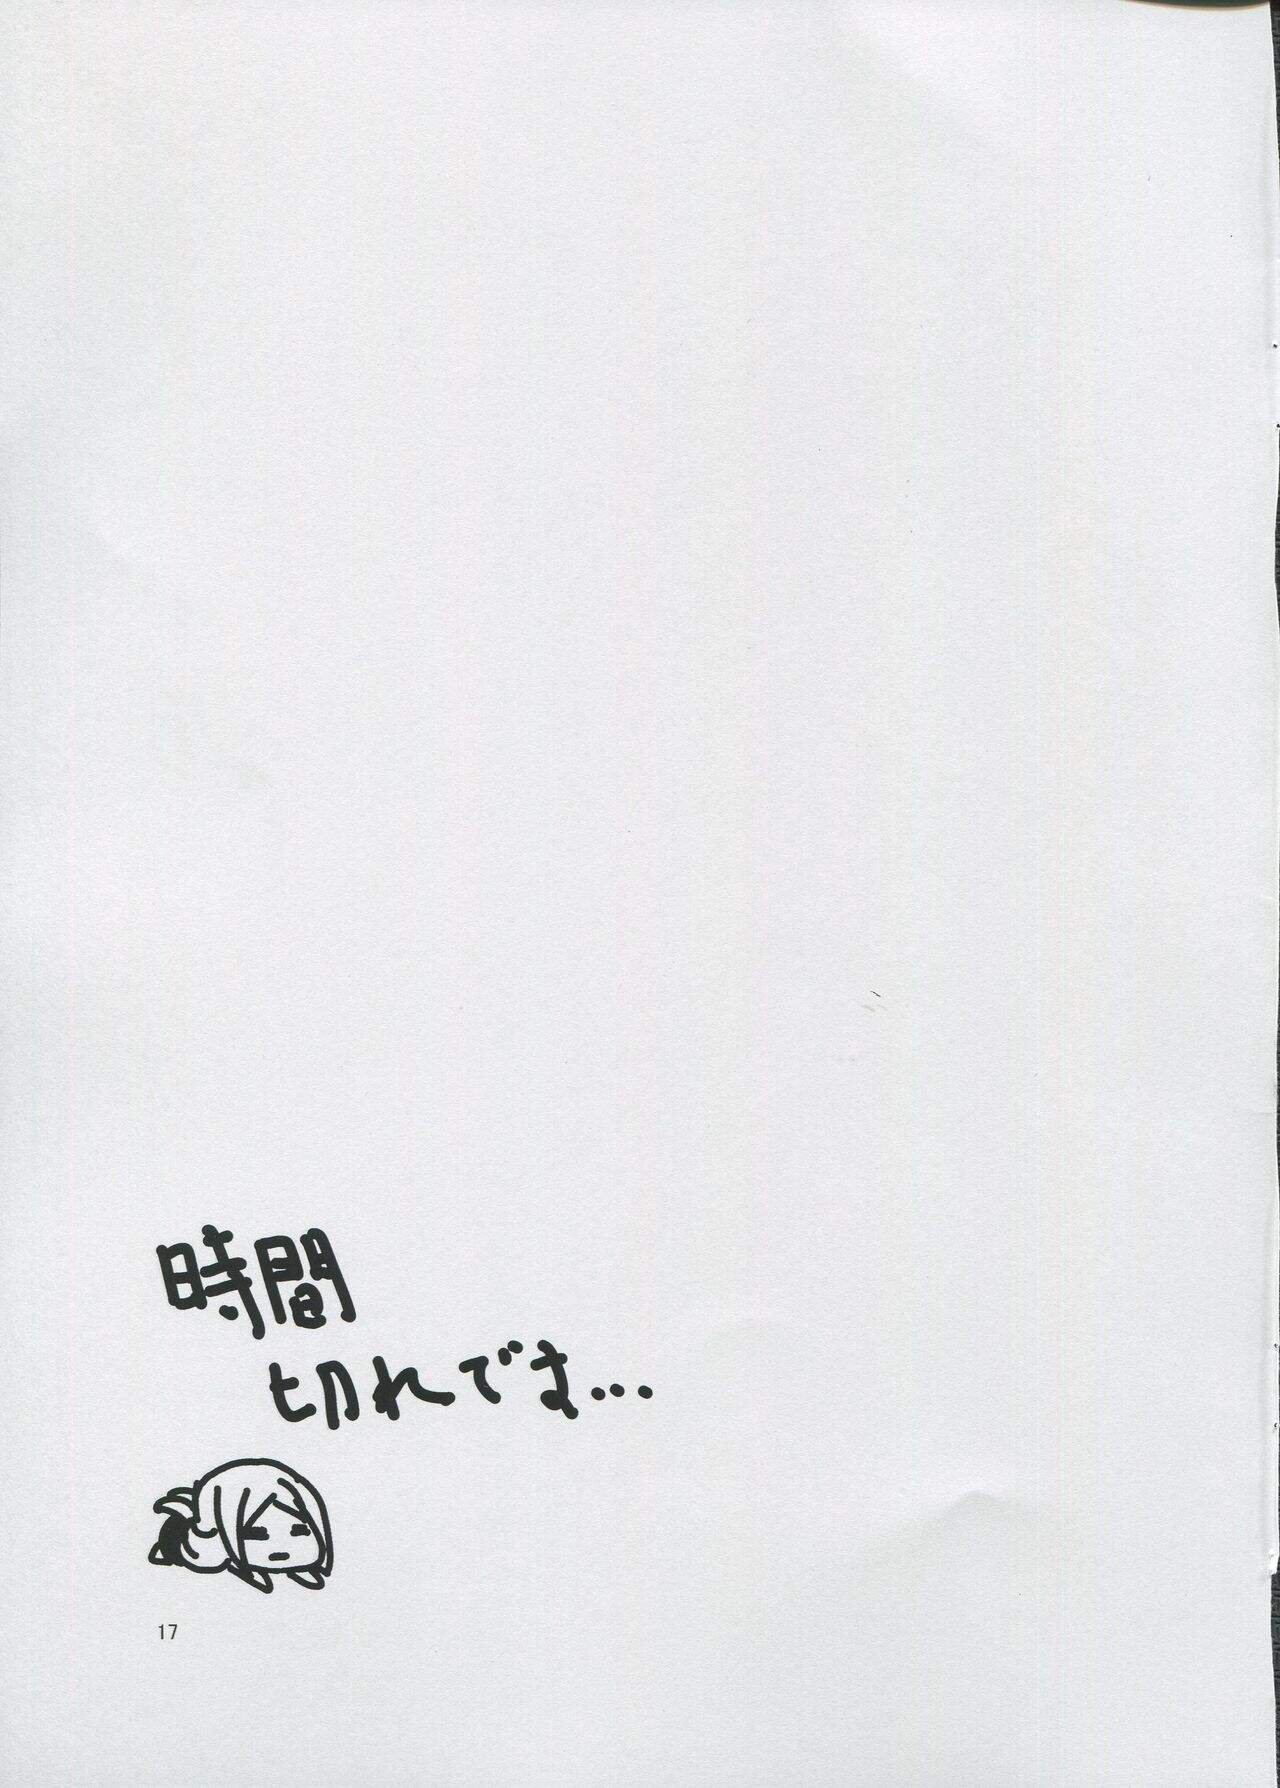 時間
切れでま...
17